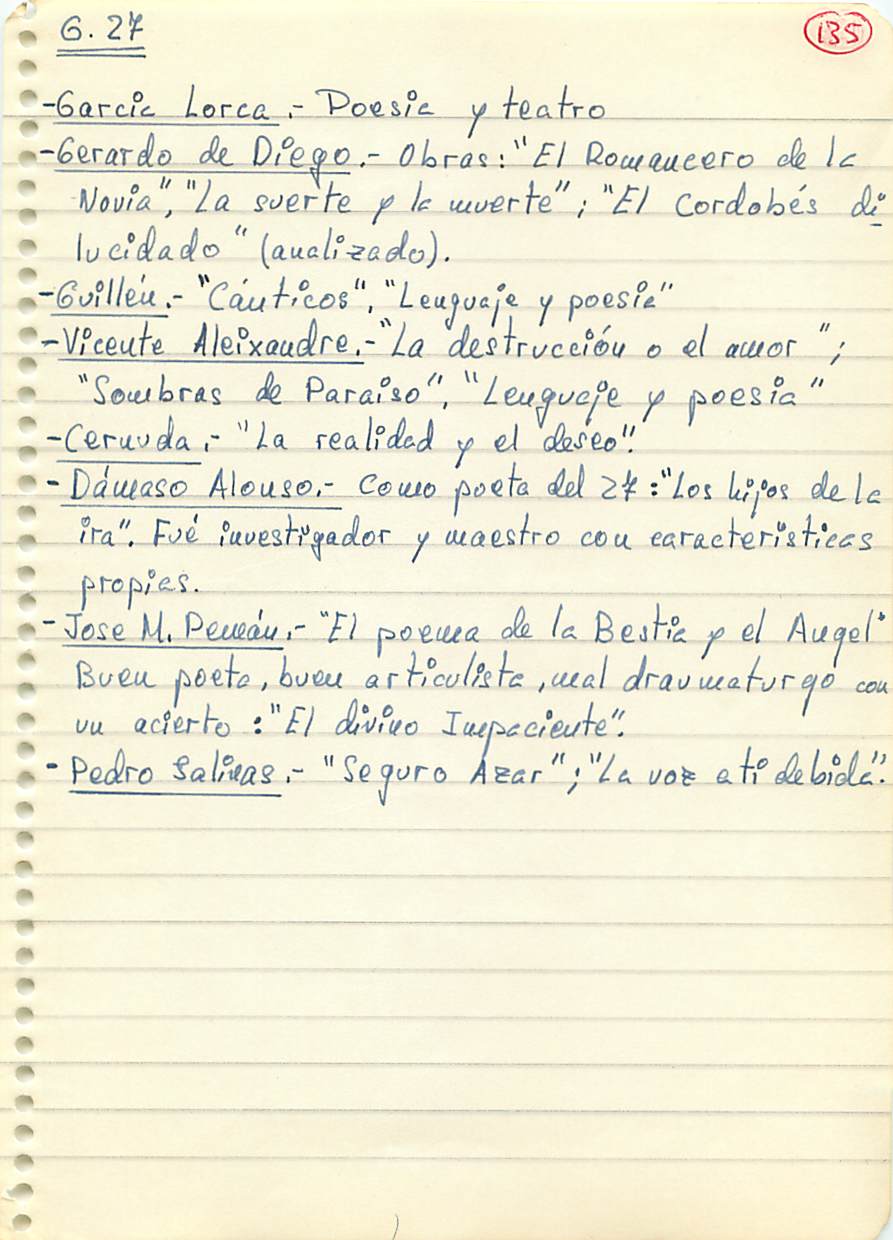 G. 27
135
- Garcia Lorca.- Poesia y teatro
- Gerardo de Diego.- Obras: "El Romancero de la
Novia", "La suerte y la muerte"; "El Cordobés di
lucidado" (analizado).
- Guillén.- "Cánticos", "Lenguaje y poesia"
- Vicente Aleixandre.- "La destrucción o el amor";
"Sombras de Paraiso", "Lenguaje y poesia"
- Cernuda.- "La realidad y el deseo".
- Dámaso Alonso.- Como poeta del 27: "Los hijos de la
ira". Fué investigador y maestro con caracteristicas
propias.
- Jose M. Pemán.- "El poema de la Bestia y el Angel"
Buen poeta, buen articulista, mal draumaturgo con
un acierto: "El divino Impaciente".
- Pedro Salinas.- "Seguro Azar"; "La voz a ti debida".